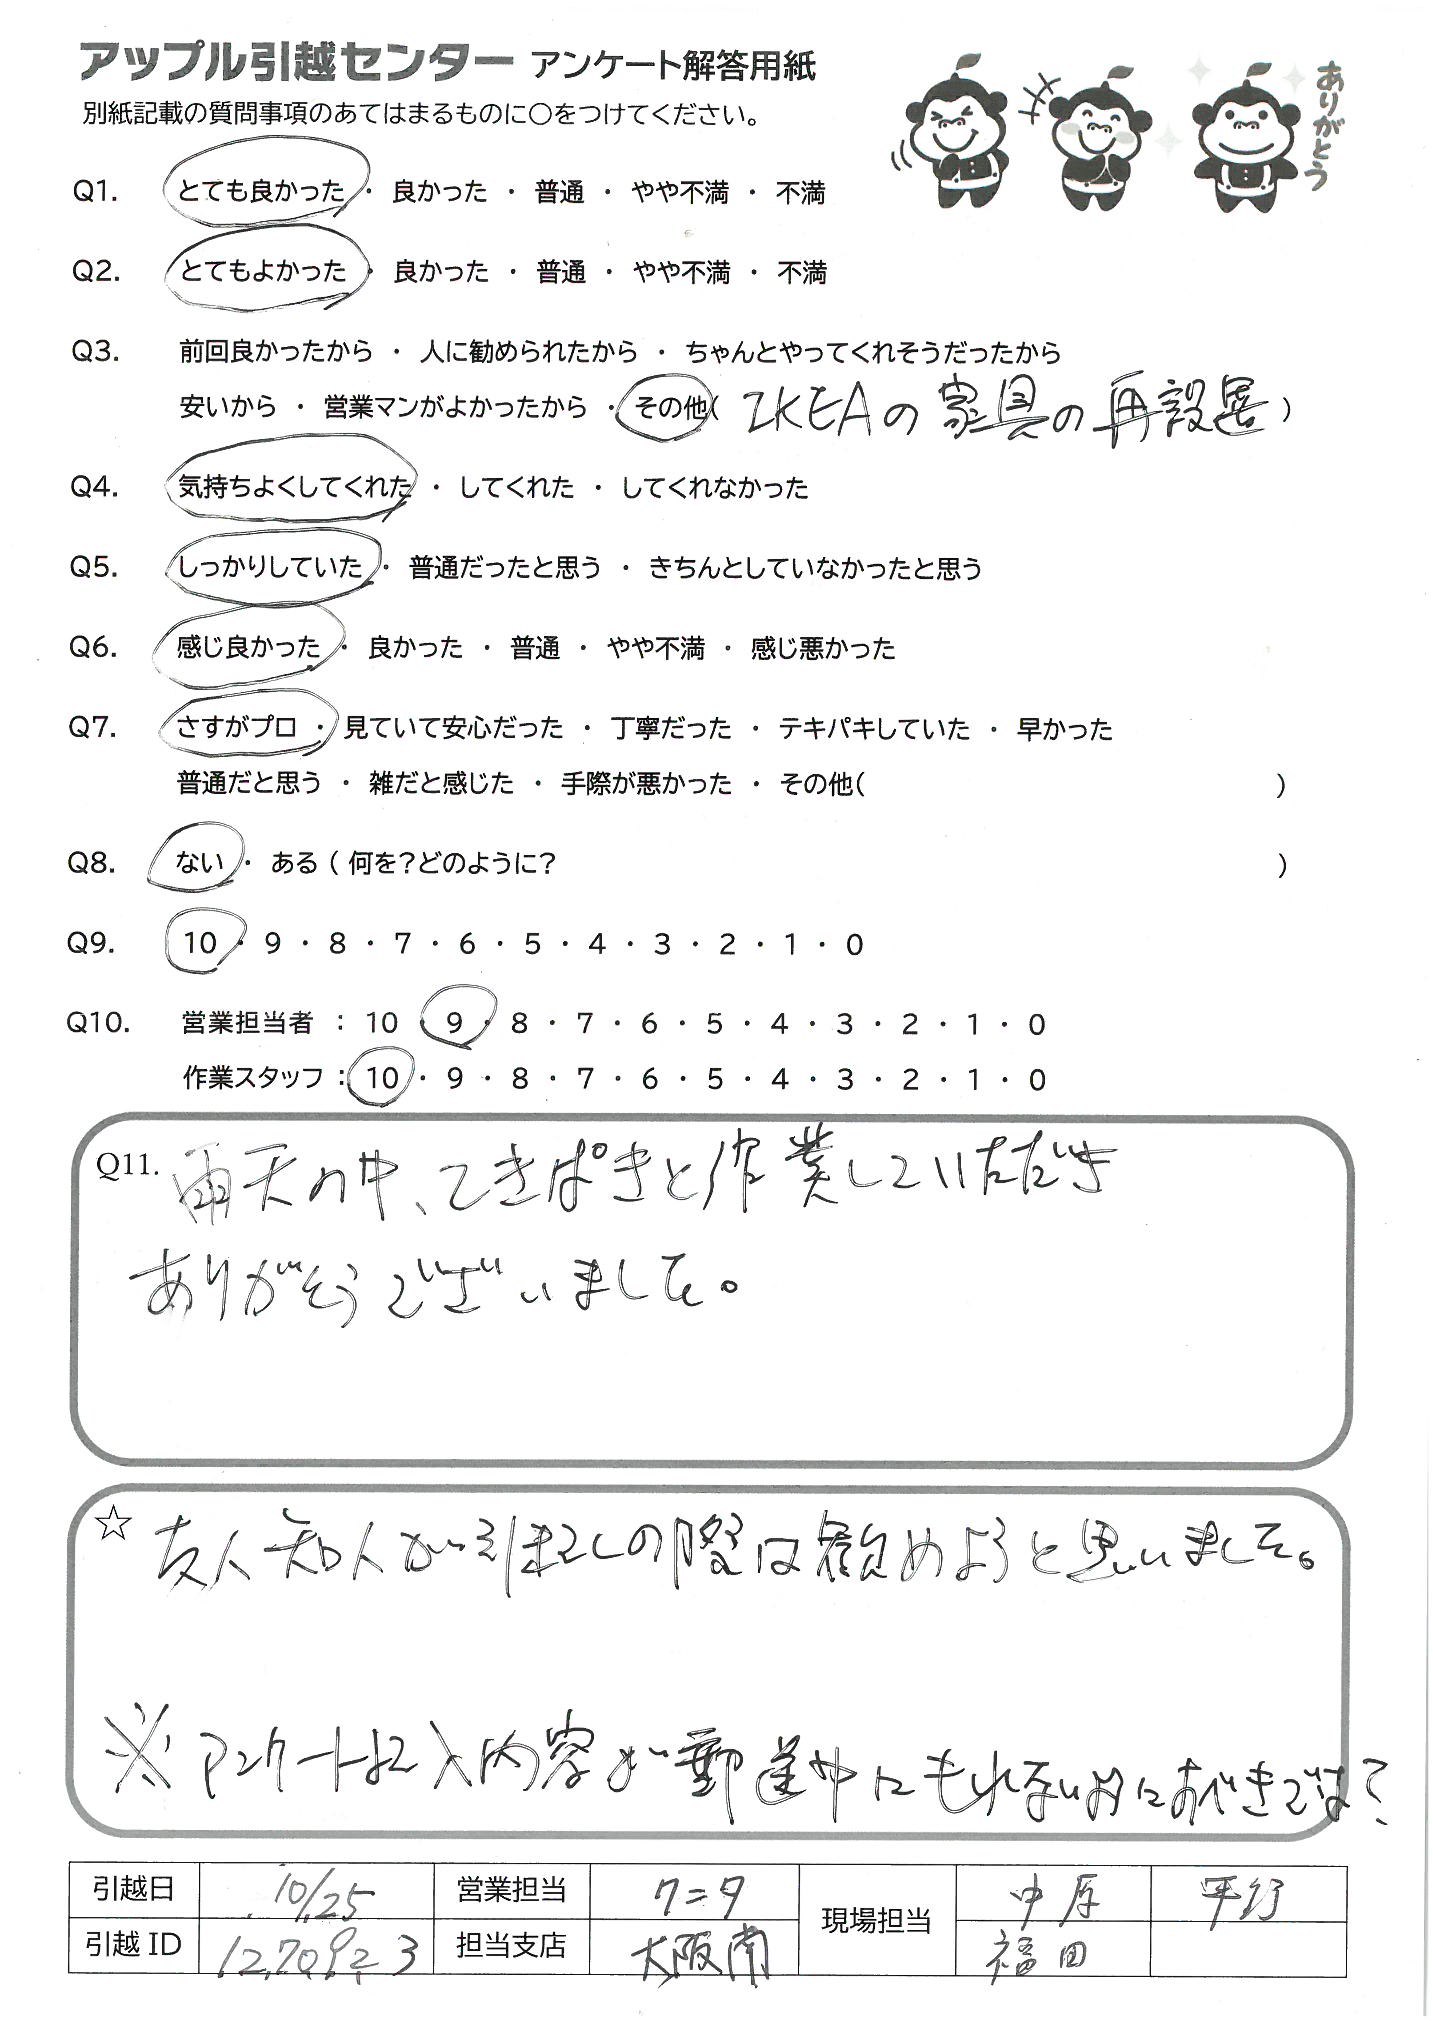 アップル引越センター アンケート解答用紙
ありがとう
別紙記載の質問事項のあてはまるものに○をつけてください。
Q1. とても良かった ・ 良かった ・ 普通 ・ やや不満 ・ 不満
Q2. とてもよかった ・ 良かった ・ 普通 ・ やや不満 ・ 不満
Q3. 前回良かったから ・ 人に勧められたから ・ ちゃんとやってくれそうだったから
安いから ・ 営業マンがよかったから ・ その他( IKEAの家具の再設置 )
Q4. 気持ちよくしてくれた ・ してくれた ・ してくれなかった
Q5. しっかりしていた ・ 普通だったと思う ・ きちんとしていなかったと思う
Q6. 感じ良かった ・ 良かった ・ 普通 ・ やや不満 ・ 感じ悪かった
Q7. さすがプロ ・ 見ていて安心だった ・ 丁寧だった ・ テキパキしていた ・ 早かった
普通だと思う ・ 雑だと感じた ・ 手際が悪かった ・ その他( )
Q8. ない ・ ある ( 何を?どのように? )
Q9. 10 ・ 9 ・ 8 ・ 7 ・ 6 ・ 5 ・ 4 ・ 3 ・ 2 ・ 1 ・ 0
Q10. 営業担当者 : 10 ・ 9 ・ 8 ・ 7 ・ 6 ・ 5 ・ 4 ・ 3 ・ 2 ・ 1 ・ 0
作業スタッフ : 10 ・ 9 ・ 8 ・ 7 ・ 6 ・ 5 ・ 4 ・ 3 ・ 2 ・ 1 ・ 0
Q11. 雨天の中、てきぱきと作業していただき
ありがとうございました。
☆ 友人知人が引越しの際は勧めようと思いました。
※アンケート記入内容が郵送中にもれないようにすべきでは?
引越日 10/25 営業担当 ワニタ 現場担当 中原 平行
引越ID 1270923 担当支店 大阪南 福田